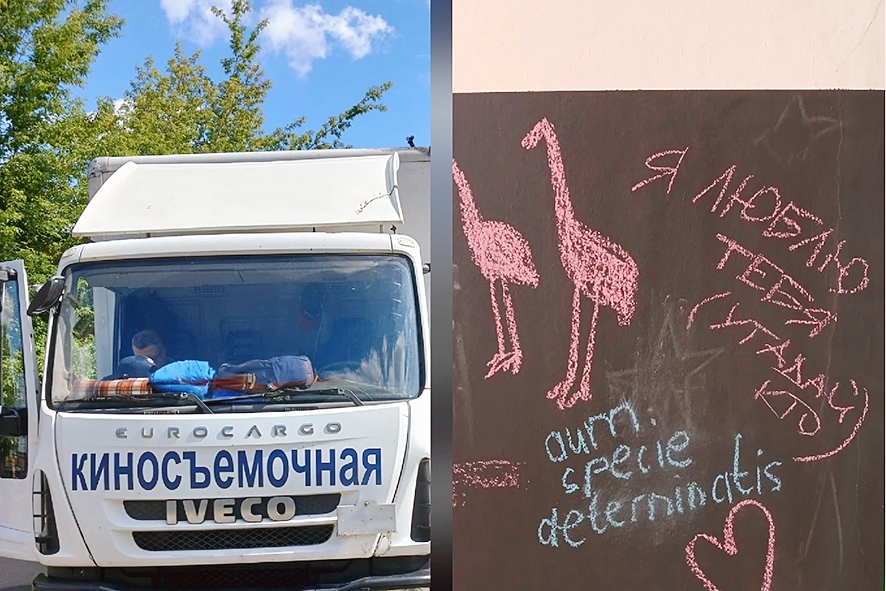 EUROCARGO
КИНОСЪЕМОЧНАЯ
IVECO
Я ЛЮБЛЮ
ТЕБЯ
aum.
specie
determinatis